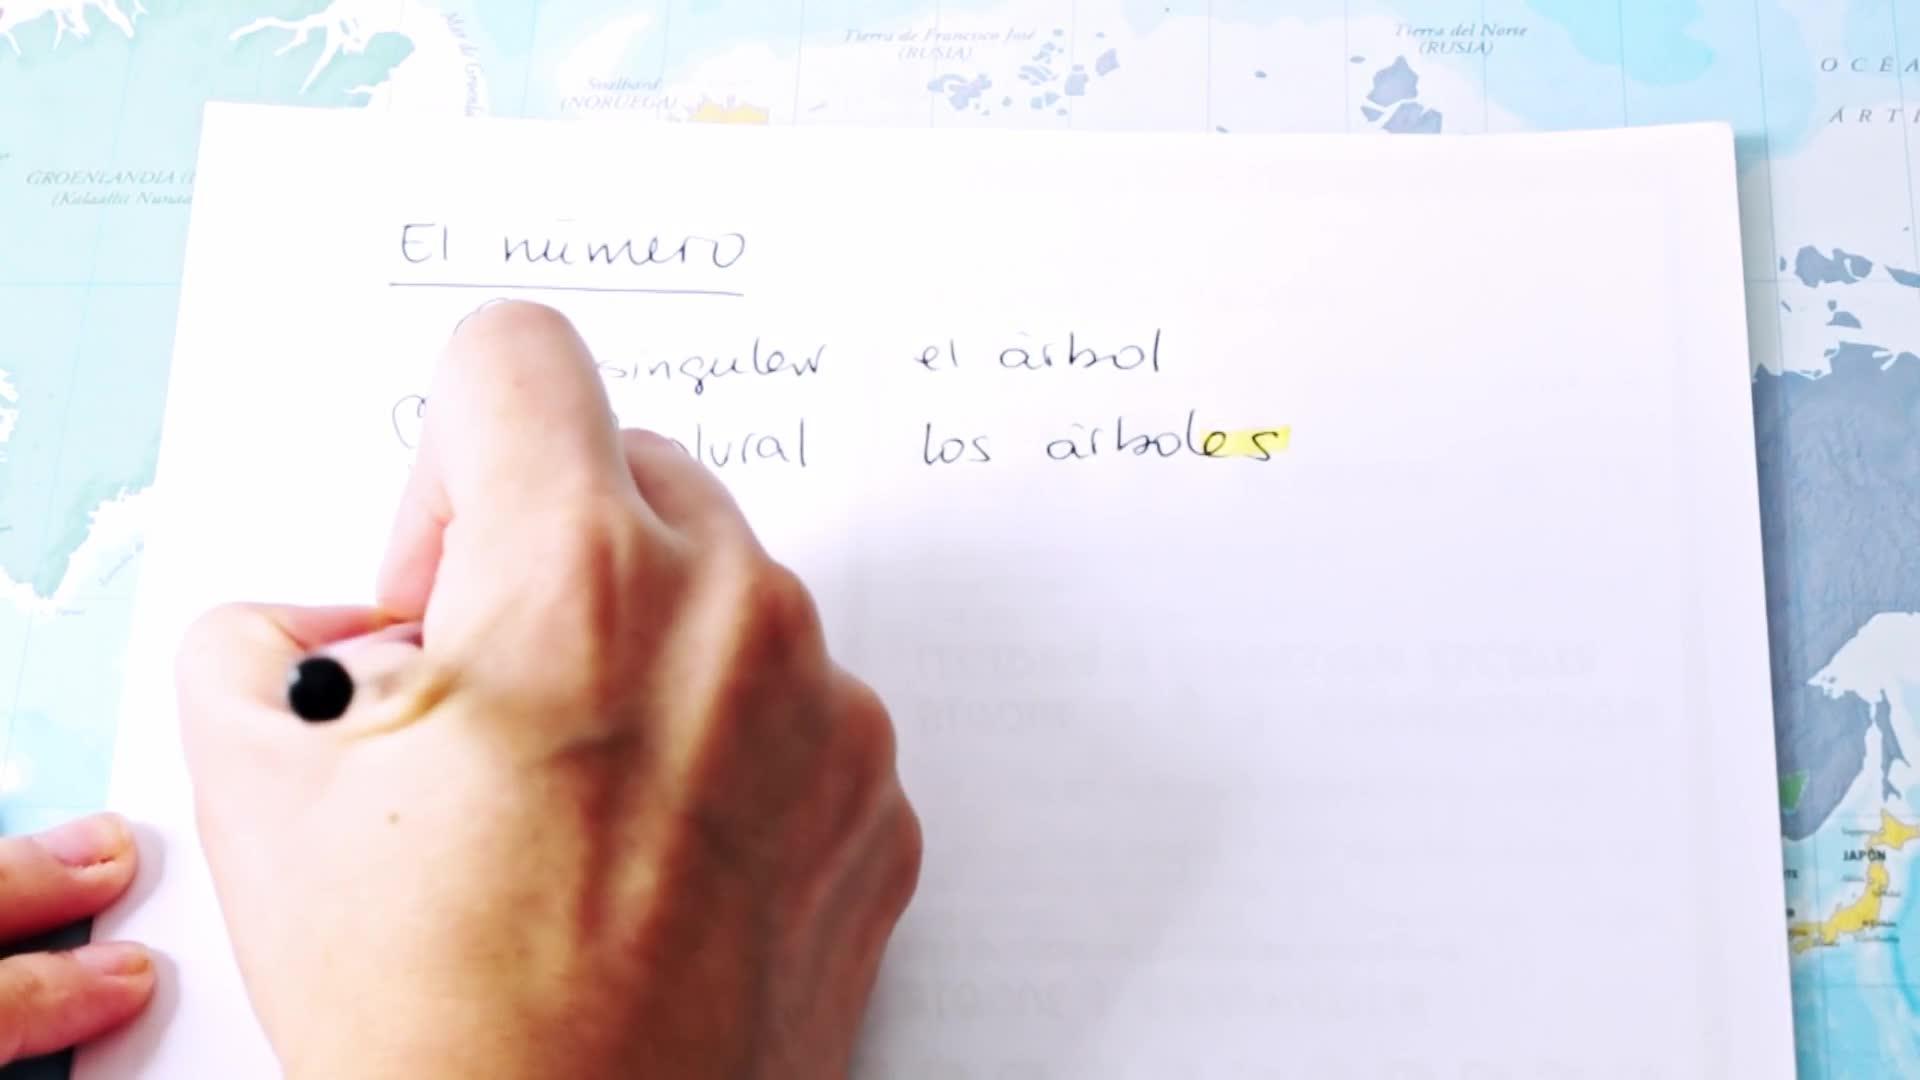 Tierra de Francisco José
(RUSIA)
Tierra del Norte
(RUSIA)
Svalbard
(NORUEGA)
GROENLANDIA
(Kalaallit Nunaa
OCÉA
ÁRTI
El número
singular el árbol
plural los árboles
JAPÓN